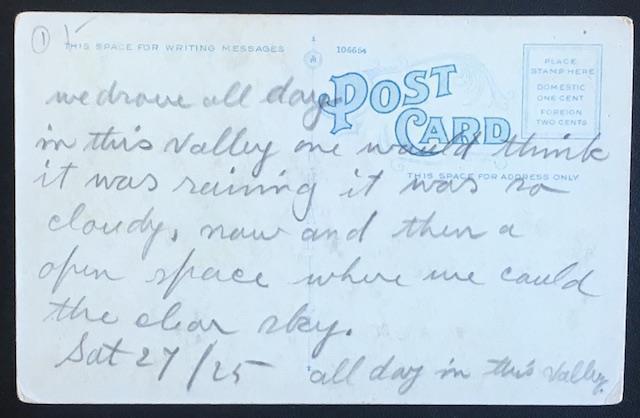 1
THIS SPACE FOR WRITING MESSAGES
106664
PLACE
STAMP HERE
DOMESTIC
ONE CENT
FOREIGN
TWO CENTS
POST
CARD
THIS SPACE FOR ADDRESS ONLY
we drove all day
in this valley one would think
it was raining it was so
cloudy, now and then a
open space where we could
the clear sky.
Sat 27/25 all day in this valley.